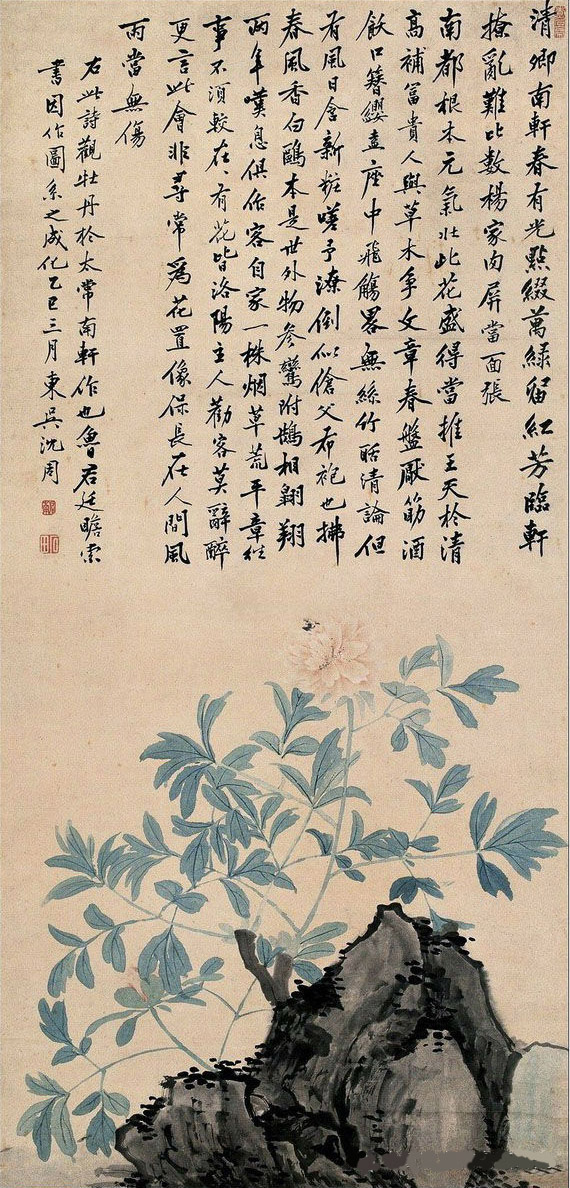 清卿南軒春有光點綴萬綠留紅芳臨軒
撩亂難比數楊家肉屏當面張
南都根本元氣壯此花盛得當推王天於清
高補富貴人與草木爭文章春盤厭飫酒
飫口簪纓盍座中飛觴畧無絲竹聒清論但
有風日含新粧嗟予潦倒似傖父布袍也拂
春風香白鷗本是世外物參鸞附鵠相翱翔
兩年嘆息俱作客自家一株烟草荒平章往
事不須較在在有花皆洛陽主人勸客莫辭醉
更言此會非尋常爲花置像保長在人間風
雨當無傷
右此詩觀牡丹於太常南軒作也魯君廷瞻索
書因作圖系之成化乙巳三月東吳沈周